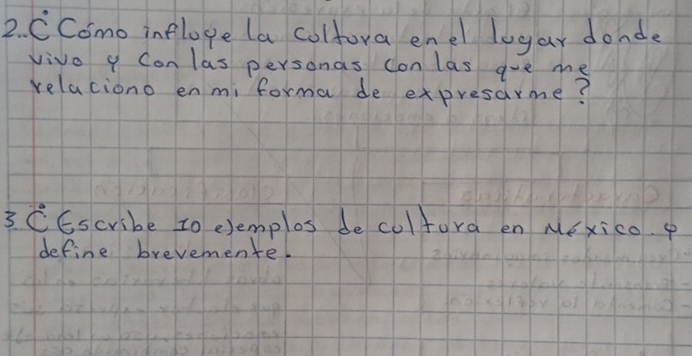 2. ¿Cómo infloye la coltora en el lugar donde
vivo y con las personas con las que me
relaciono en mi forma de expresarme?
3. ¿Escribe 10 ejemplos de coltura en México. y
define brevemente.